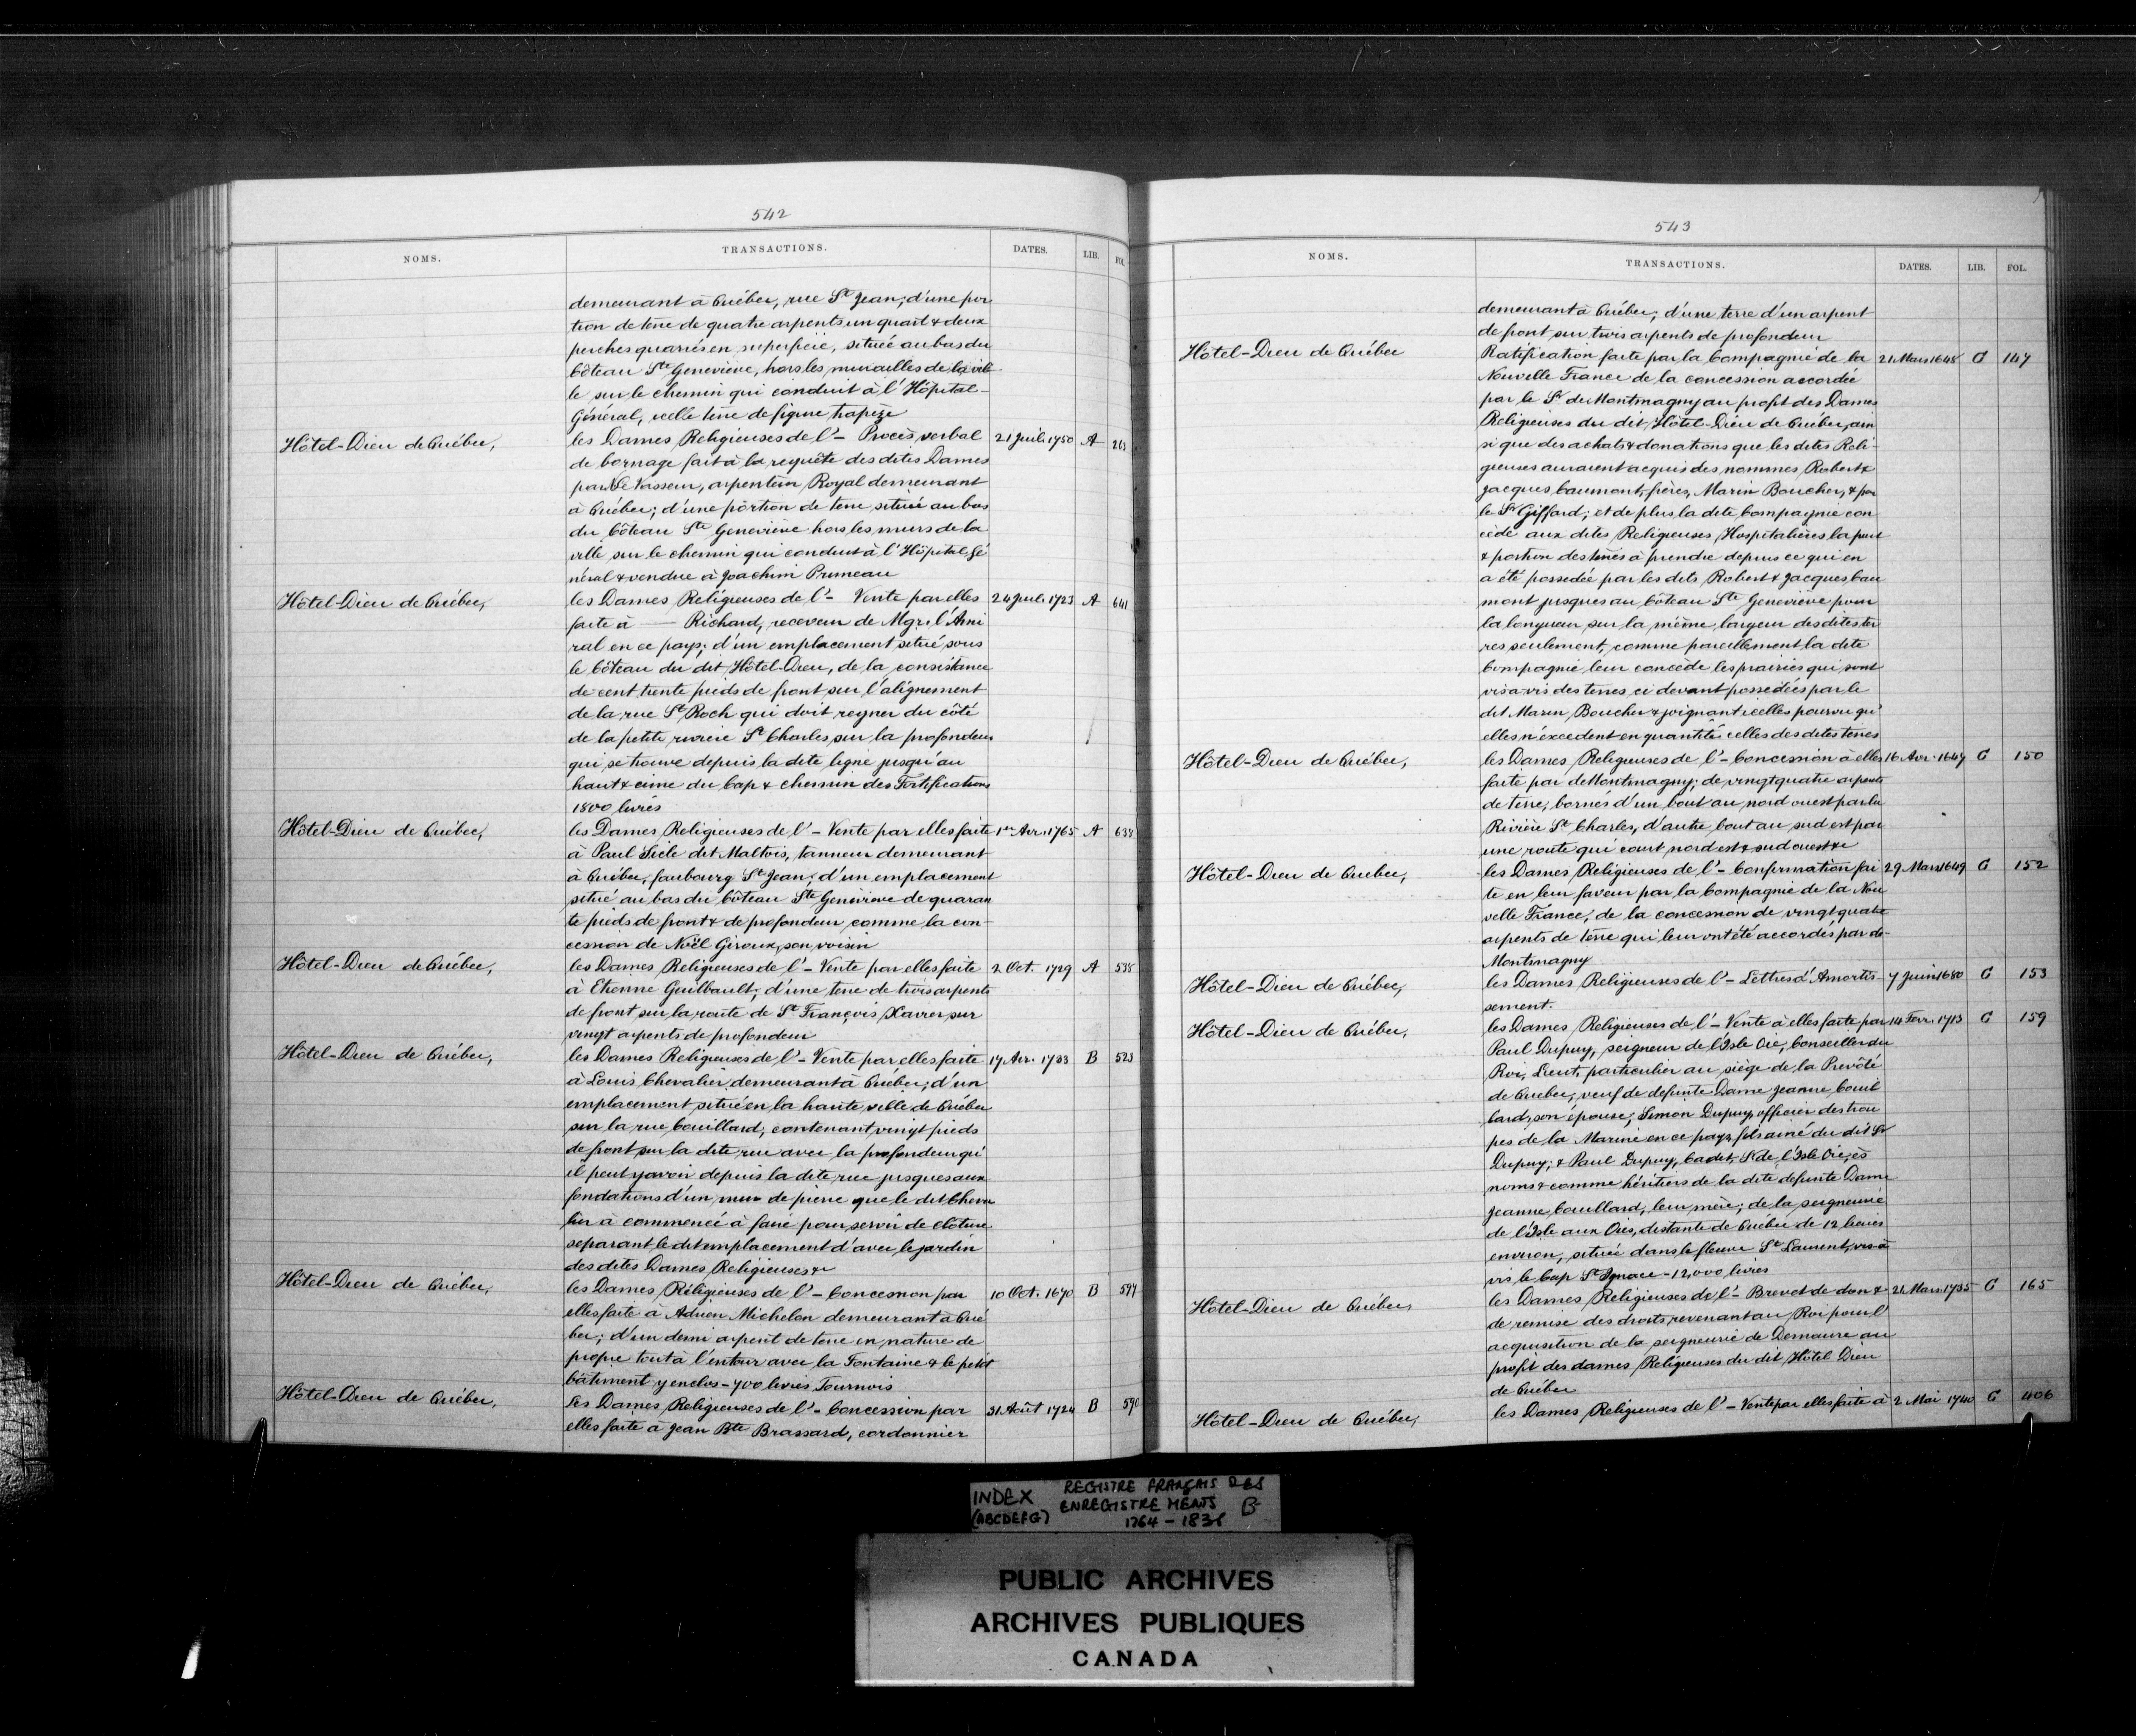 542
NOMS. TRANSACTIONS. DATES. LIB. FOL.
demeurant à Québec, rue St Jean; d'une por
tion de terre de quatre arpents un quart & deux
perches quarrés en superficie, située au bas du
Côteau Ste Geneviève, hors les murailles de la vil
le sur le chemin qui conduit à l'Hôpital-
Général, icelle terre de figure trapèze
Hôtel-Dieu de Québec, les Dames Religieuses de l'- Procès verbal 21 Juil. 1750 A 263
de bornage fait à la requête des dites Dames
par Le Vasseur, arpenteur Royal demeurant
à Québec; d'une portion de terre située au bas
du Côteau Ste Geneviève hors les murs de la
ville sur le chemin qui conduit à l'Hôpital Gé
néral & vendue à Joachim Primeau
Hôtel-Dieu de Québec, les Dames Religieuses de l'- Vente par elles 24 Juil. 1723 A 641
faite à — Richard, receveur de Mgr. l'Ami
ral en ce pays; d'un emplacement situé sous
le Côteau du dit Hôtel-Dieu, de la consistance
de cent trente pieds de front sur l'alignement
de la rue St Roch qui doit regner du côté
de la petite rivière St Charles, sur la profondeur
qui se trouve depuis la dite ligne jusqu'au
haut & cime du Cap & chemin des Fortifications
1800 livres
Hôtel-Dieu de Québec, les Dames Religieuses de l'- Vente par elles faite 1er Avr. 1765 A 638
à Paul Sicle dit Maltois, tanneur demeurant
à Québec, faubourg St Jean; d'un emplacement
situé au bas du Côteau Ste Geneviève de quaran
te pieds de front & de profondeur comme la con-
cession de Noël Giroux, son voisin
Hôtel-Dieu de Québec, les Dames Religieuses de l'- Vente par elles faite 2 Oct. 1729 A 538
à Etienne Guilbault; d'une terre de trois arpents
de front sur la route de St François Xavier sur
vingt arpents de profondeur
Hôtel-Dieu de Québec, les Dames Religieuses de l'- Vente par elles faite 17 Avr. 1733 B 523
à Louis Chevalier demeurant à Québec; d'un
emplacement située en la haute ville de Québec
sur la rue Couillard, contenant vingt pieds
de front sur la dite rue avec la profondeur qu'
il peut y avoir depuis la dite rue jusques aux
fondations d'un mur de pierre que le dit Cheva
lier à commencé à faire pour servir de clôture
separant le dit emplacement d'avec le jardin
des dites Dames Religieuses &c
Hôtel-Dieu de Québec, les Dames Réligieuses de l'- Concession par 10 Oct. 1670 B
elles faite à Adrien Michelon demeurant à Qué
bec; d'un demi arpent de terre en nature de
propre tout à l'entour avec la Fontaine & le petit
bâtiment y enclos - 700 livres Tournois
Hôtel-Dieu de Québec, les Dames Religieuses de l'- Concession par 31 Août 1724 B 590
elles faite à Jean Bte Brassard, cordonnier
543
NOMS. TRANSACTIONS. DATES. LIB. FOL.
demeurant à Québec; d'une terre d'un arpent
de front sur trois arpents de profondeur
Hôtel-Dieu de Québec Ratification faite par la Compagnie de la 21 Mars 1648 C 147
Nouvelle France de la concession accordée
par le Sr de Montmagny au profit des Dames
Religieuses du dit Hôtel-Dieu de Québec, ain
si que des achats & donations que les dites Reli-
gieuses auraient acquis des nommés Robert &
Jacques Caumont, frères, Marin Boucher, & par
le Sr Giffard; et de plus la dite Compagnie con
cède aux dites Religieuses Hospitalières la part
& portion des terres à prendre depuis ce qui en
a été possedée par les dits Robert & Jacques Cau
mont jusques au Côteau Ste Geneviève pour
la longueur sur la même largeur des dites ter
res seulement, comme pareillement la dite
Compagnie leur concède les prairies qui sont
vis à vis des terres ci devant possedées par le
dit Marin Boucher & joignant icelles pourvu qu'
elles n'excedent en quantité celles des dites terres
Hôtel-Dieu de Québec, les Dames Religieuses de l'- Concession à elles 16 Avr. 1647 C 150
faite par de Montmagny; de vingt quatre arpents
de terre, bornés d'un bout au nord ouest par la
Rivière St Charles, d'autre bout au sud est par
une route qui court nord est & sud ouest &c
Hôtel-Dieu de Québec, les Dames Religieuses de l'- Confirmation fai 29 Mars 1649 C 152
te en leur faveur par la Compagnie de la Nou
velle France, de la concession de vingt quatre
arpents de terre qui leur ont été accordés par de-
Montmagny
Hôtel-Dieu de Québec, les Dames Religieuses de l'- Lettres d'Amortis- 7 Juin 1680 C 153
sement.
Hôtel-Dieu de Québec, les Dames Religieuses de l'- Vente à elles faite par 14 Fevr. 1713 C 159
Paul Dupuy, seigneur de l'Isle Oie, Conseiller du
Roi, Lieut. particulier au siège de la Prevôté
de Québec, veuf de defunte Dame Jeanne Couil
lard, son épouse; Simon Dupuy, officier des trou
pes de la Marine en ce pays, fils ainé du dit Sr
Dupuy; & Paul Dupuy, Cadet, Sr de l'Isle Oie, ès
noms & comme héritiers de la dite defunte Dame
Jeanne Couillard, leur mère; de la seigneurie
de l'Isle aux Oies, distante de Québec de 12 lieues
environ, située dans le fleuve St Laurent, vis à
vis le Cap St Ignace - 12,000 livres
Hôtel-Dieu de Québec, les Dames Religieuses de l'- Brevet de don & 21 Mars 1735 C 165
de remise des droits revenant au Roi pour l'
acquisition de la seigneurie de Demaure au
profit des dames Religieuses du dit Hôtel Dieu
de Québec
Hôtel-Dieu de Québec, les Dames Religieuses de l'- Vente par elles faite à 2 Mai 1740 C 406
INDEX REGISTRE FRANÇAIS DES
(ABCDEFG) ENREGISTREMENTS B
1764 - 183
PUBLIC ARCHIVES
ARCHIVES PUBLIQUES
CANADA